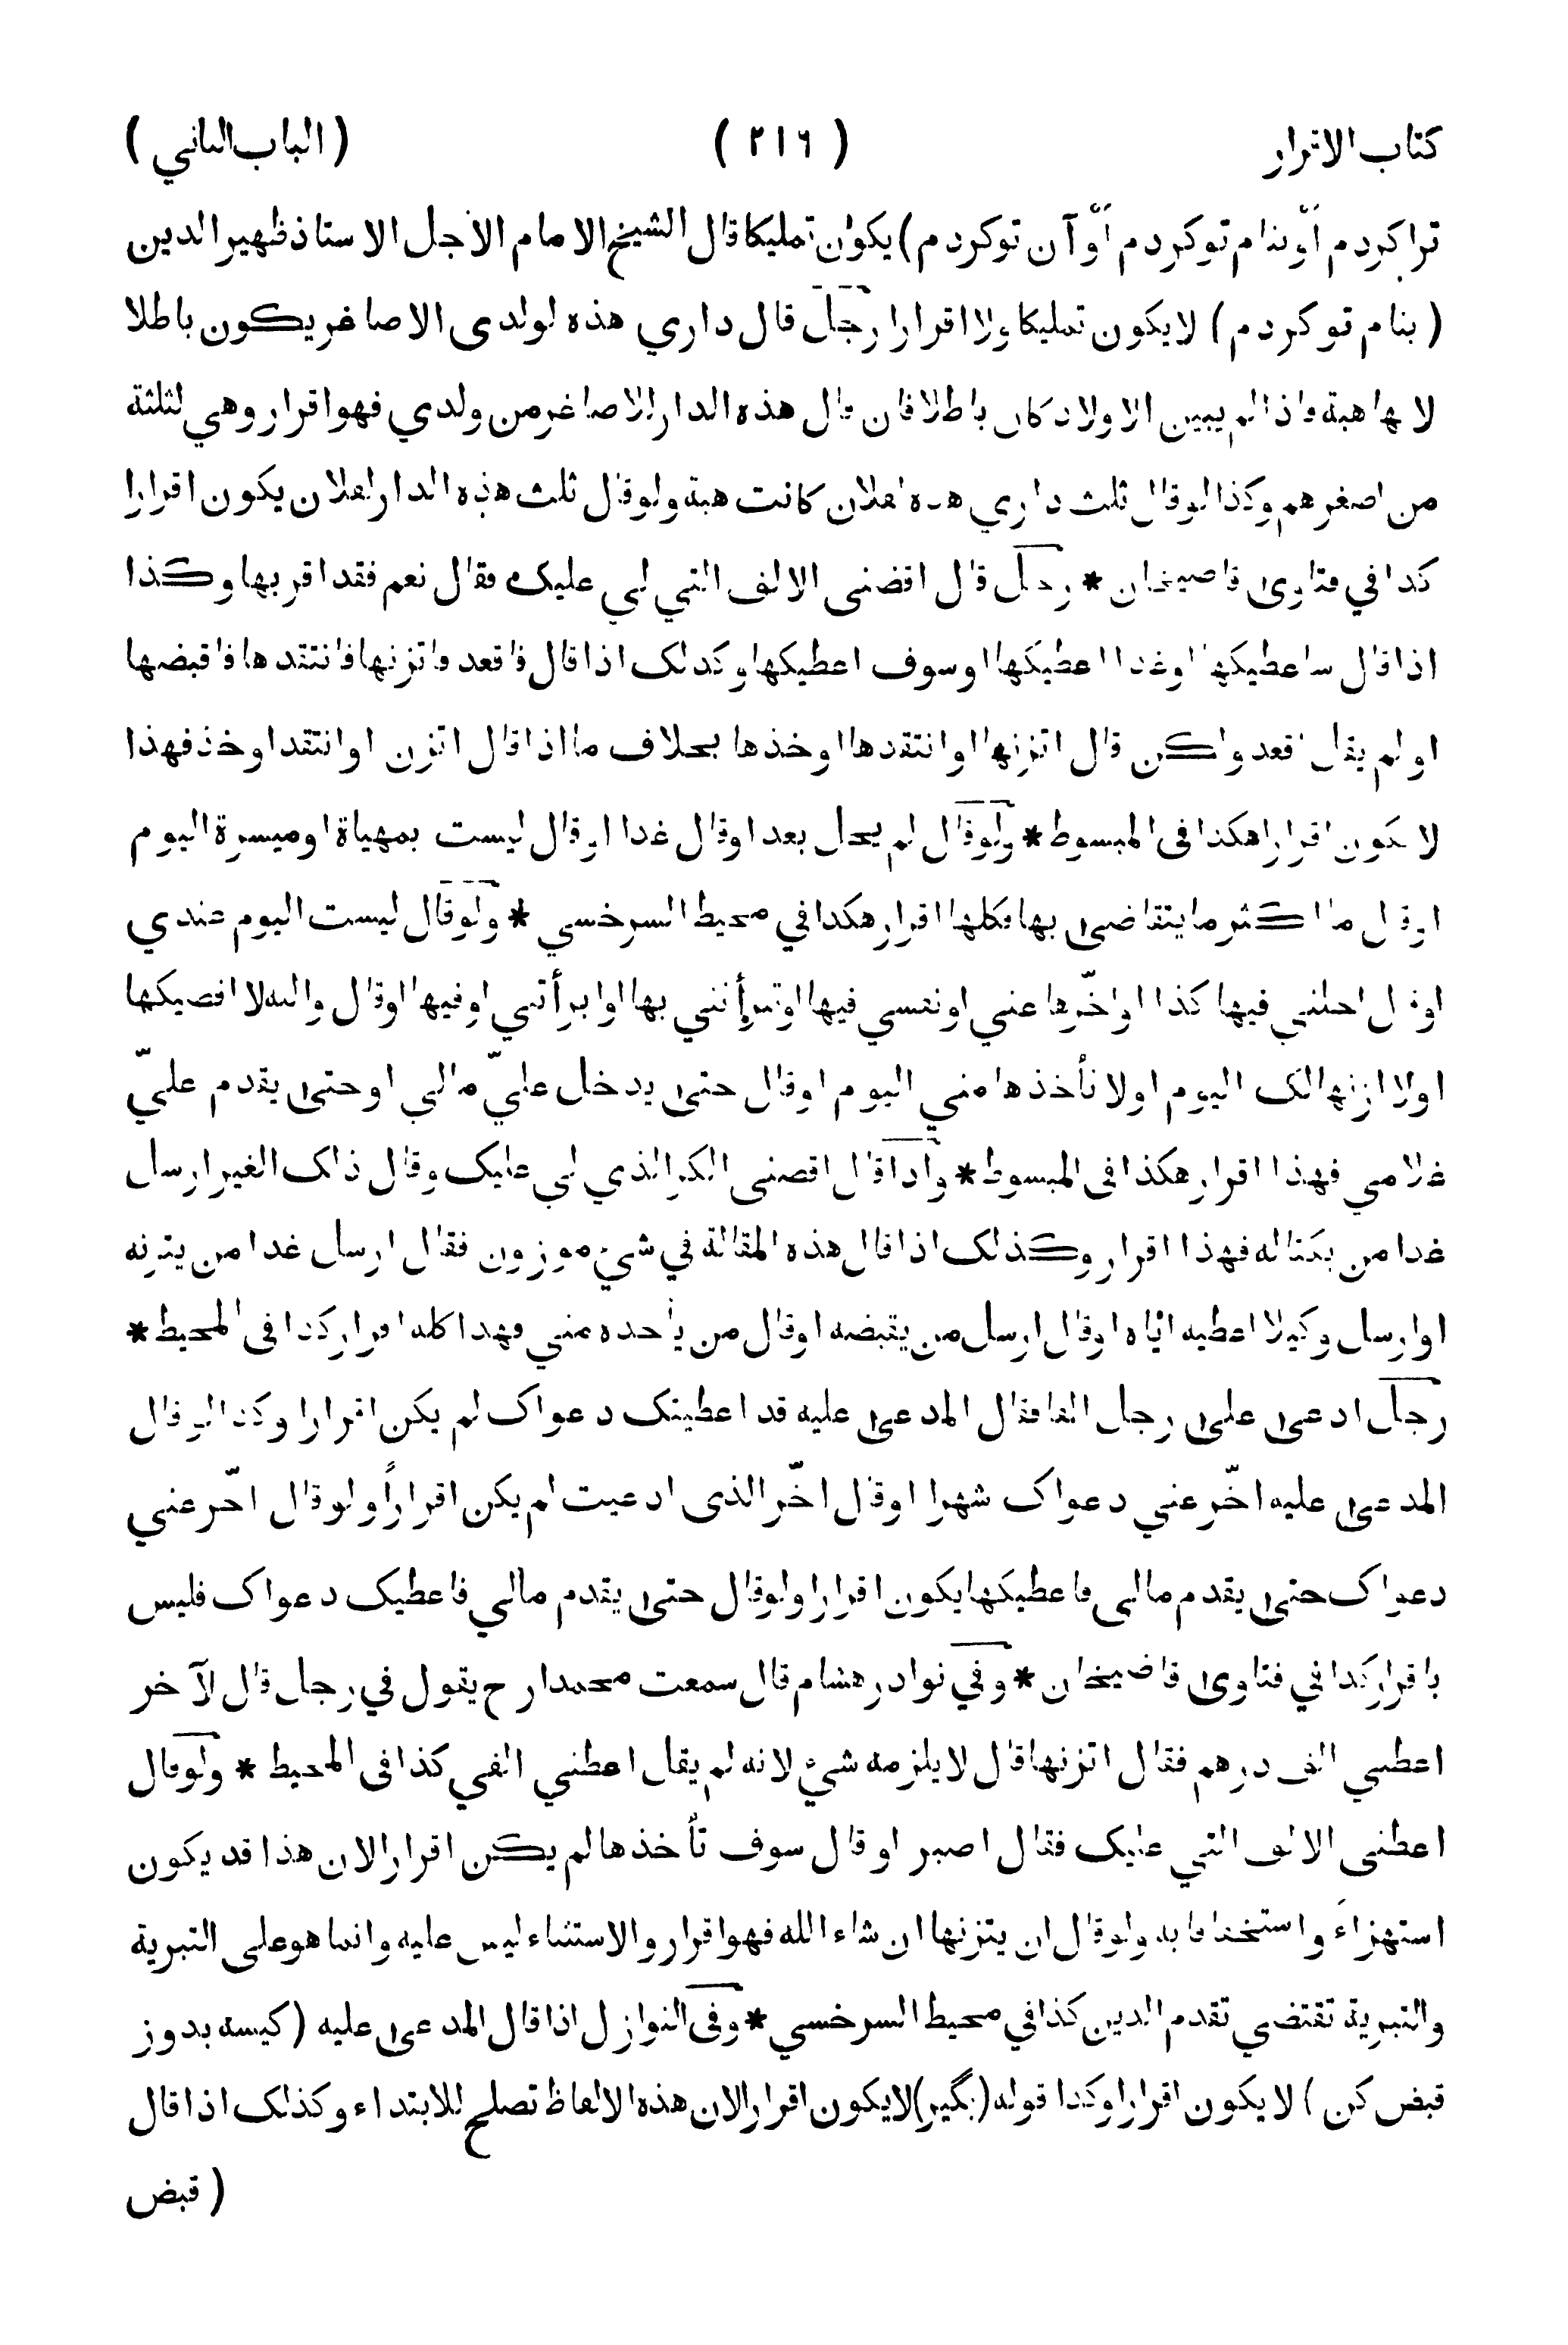 كتاب الاقرار
( ٢١٦ )
( الباب الثاني )
تراكردم اَوْ بنام توكردم اَوْ آن توكردم) يكون تمليكا قال الشيخ الامام الاجل الاستاذ ظهير الدين
( بنام توكردم ) لا يكون تمليكا ولا اقرارا رجل قال داري هذه لولدى الاصاغر يكون باطلا
لانها هبة فاذا لم يبين الاولاد كان باطلا فان قال هذه الدار للاصاغر من ولدي فهو اقرار وهي لثلثة
من اصغرهم وكذا لو قال ثلث داري هذه لفلان كانت هبة ولو قال ثلث هذه الدار لفلان يكون اقرارا
كذا في فتاوى قاضيخان * رجل قال اقضنى الالف التي لي عليك فقال نعم فقد اقر بها وكذا
اذا قال ساعطيكها او غدا اعطيكها او سوف اعطيكها وكذلك اذا قال فاقعد فاتزنها فانتقدها فاقبضها
او لم يقل اقعد ولكن قال اتزنها او انتقدها او خذها بخلاف ما اذا قال اتزن او انتقد او خذ فهذا
لا يكون اقرارا هكذا فى المبسوط * ولو قال لم يحل بعد او قال غدا او قال ليست بمهياة او ميسرة اليوم
او قال ما اكثر ما يتقاضى بها فكلها اقرار هكذا في محيط السرخسي * ولو قال ليست اليوم عندي
او قال اجلني فيها كذا او اخّرها عني او نفسي فيها او تبرأنني بها او ابرأتني او فيها او قال والله لا اقضيكها
او لا ازنها لك اليوم او لا تأخذها مني اليوم او قال حتى يدخل عليّ مالي او حتى يقدم عليّ
غلامي فهذا اقرار هكذا فى المبسوط * واذا قال اقضنى الكر الذي لي عليك وقال ذلك الغير ارسل
غدا من يكتاله فهذا اقرار وكذلك اذا قال هذه المقالة في شيء موزون فقال ارسل غدا من يتزنه
او ارسل وكيلا اعطيه اياه او قال ارسل من يقبضه او قال من يأخذه مني فهذا كله اقرار كذا فى المحيط *
رجل ادعى على رجل الفا فقال المدعى عليه قد اعطيتك دعواك لم يكن اقرارا وكذا لو قال
المدعى عليه اخّر عني دعواك شهرا او قال اخّر الذى ادعيت لم يكن اقراراً ولو قال اخّر عني
دعواك حتى يقدم مالي فاعطيكها يكون اقرارا ولو قال حتى يقدم مالي فاعطيك دعواك فليس
باقرار كذا في فتاوى قاضيخان * وفي نوادر هشام قال سمعت محمدا رح يقول في رجل قال لآخر
اعطني الف درهم فقال اتزنها قال لا يلزمه شيء لانه لم يقل اعطني الفي كذا فى المحيط * ولو قال
اعطنى الالف التي عليك فقال اصبر او قال سوف تأخذها لم يكن اقرارا لان هذا قد يكون
استهزاءً واستخفافا به ولو قال ان يتزنها ان شاء الله فهو اقرار والاستثناء ليس عليه وانما هو على التبرية
والتبرية تقتضي تقدم الدين كذا في محيط السرخسي * وفى النوازل اذا قال المدعى عليه ( كيسه بدوز
قبض كن ) لا يكون اقرارا وكذا قوله (بگير) لا يكون اقرارا لان هذه الالفاظ تصلح للابتداء وكذلك اذا قال
( قبض